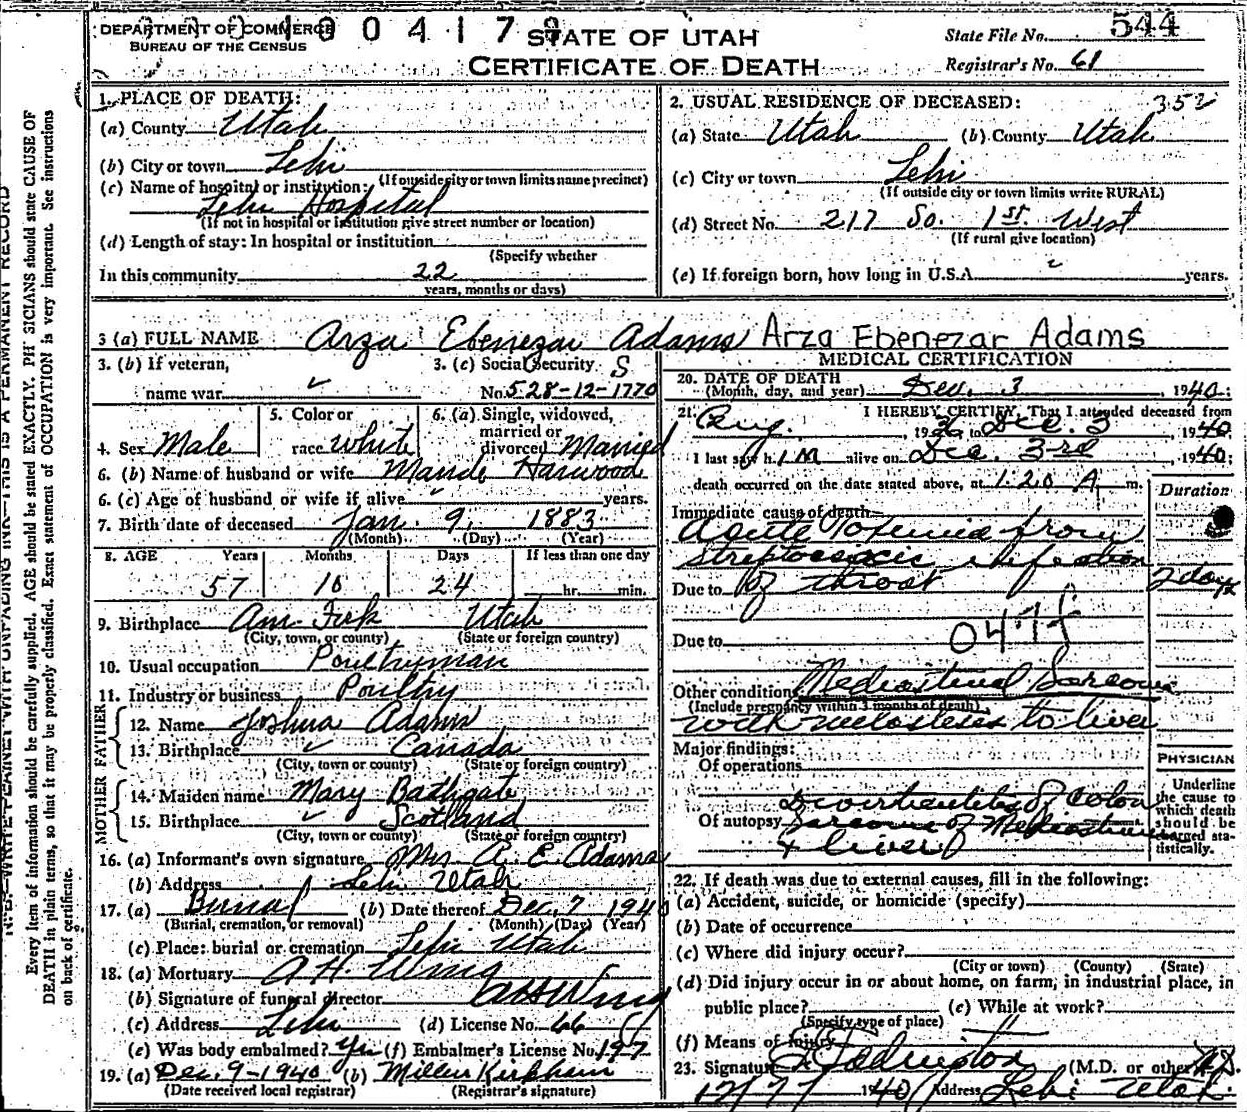 DEPARTMENT OF COMMERCE
BUREAU OF THE CENSUS
STATE OF UTAH
CERTIFICATE OF DEATH
State File No. 544
Registrar's No. 61
1. PLACE OF DEATH:
(a) County Utah
(b) City or town Lehi
(If outside city or town limits name precinct)
(c) Name of hospital or institution:
Lehi Hospital
(If not in hospital or institution give street number or location)
(d) Length of stay: In hospital or institution
(Specify whether
In this community 22
years, months or days)
2. USUAL RESIDENCE OF DECEASED: 352
(a) State Utah (b) County Utah
(c) City or town Lehi
(If outside city or town limits write RURAL)
(d) Street No. 217 So. 1st. West
(If rural give location)
(e) If foreign born, how long in U.S.A years.
3 (a) FULL NAME Arza Ebenezar Adams Arza Ebenezar Adams
3. (b) If veteran,
name war
3. (c) Social Security S
No. 528-12-1770
4. Sex Male
5. Color or
race white
6. (a) Single, widowed,
married or
divorced Married
6. (b) Name of husband or wife Maude Harwood
6. (c) Age of husband or wife if alive years.
7. Birth date of deceased Jan. 9, 1883
(Month) (Day) (Year)
8. AGE Years Months Days If less than one day
57 10 24 hr. min.
9. Birthplace Am. Fork Utah
(City, town, or county) (State or foreign country)
10. Usual occupation Poultryman
11. Industry or business Poultry
FATHER
12. Name Joshua Adams
13. Birthplace Canada
(City, town or county) (State or foreign country)
MOTHER
14. Maiden name Mary Bathgate
15. Birthplace Scotland
(City, town or county) (State or foreign country)
16. (a) Informant's own signature Mrs A. E. Adams
(b) Address Lehi Utah
17. (a) Burial (b) Date thereof Dec. 7 1940
(Burial, cremation, or removal) (Month) (Day) (Year)
(c) Place: burial or cremation Lehi Utah
18. (a) Mortuary A. H. Wing
(b) Signature of funeral director Wing
(c) Address Lehi (d) License No. 66
(e) Was body embalmed? Yes (f) Embalmer's License No. 197
19. (a) Dec. 9-1940 (b) Miller Kirkham
(Date received local registrar) (Registrar's signature)
MEDICAL CERTIFICATION
20. DATE OF DEATH
(Month, day, and year) Dec. 3 1940:
21. I HEREBY CERTIFY, That I attended deceased from
Aug. , 1936, to Dec. 3 , 1940
I last saw him alive on Dec. 3rd , 1940:
death occurred on the date stated above, at 1:20 A m.
Duration
Immediate cause of death
Acute Toxemia from
streptococcic infection
Due to of throat 2 days
Due to 047f
Other condition Mediastinal Sarcoma
(Include pregnancy within 3 months of death)
with metastases to liver
Major findings:
Of operations
Diverticulitis of Colon
Of autopsy Sarcoma of Mediastinum
+ liver
PHYSICIAN
Underline
the cause to
which death
should be
charged sta-
tistically.
22. If death was due to external causes, fill in the following:
(a) Accident, suicide, or homicide (specify)
(b) Date of occurrence
(c) Where did injury occur?
(City or town) (County) (State)
(d) Did injury occur in or about home, on farm, in industrial place, in
public place? (e) While at work?
(Specify type of place)
(f) Means of injury
23. Signature (M.D. or other M.D.
1940 Address Lehi Utah
Every item of information should be carefully supplied. AGE should be stated EXACTLY. PHYSICIANS should state CAUSE OF
DEATH in plain terms, so that it may be properly classified. Exact statement of OCCUPATION is very important. See instructions
on back of certificate.